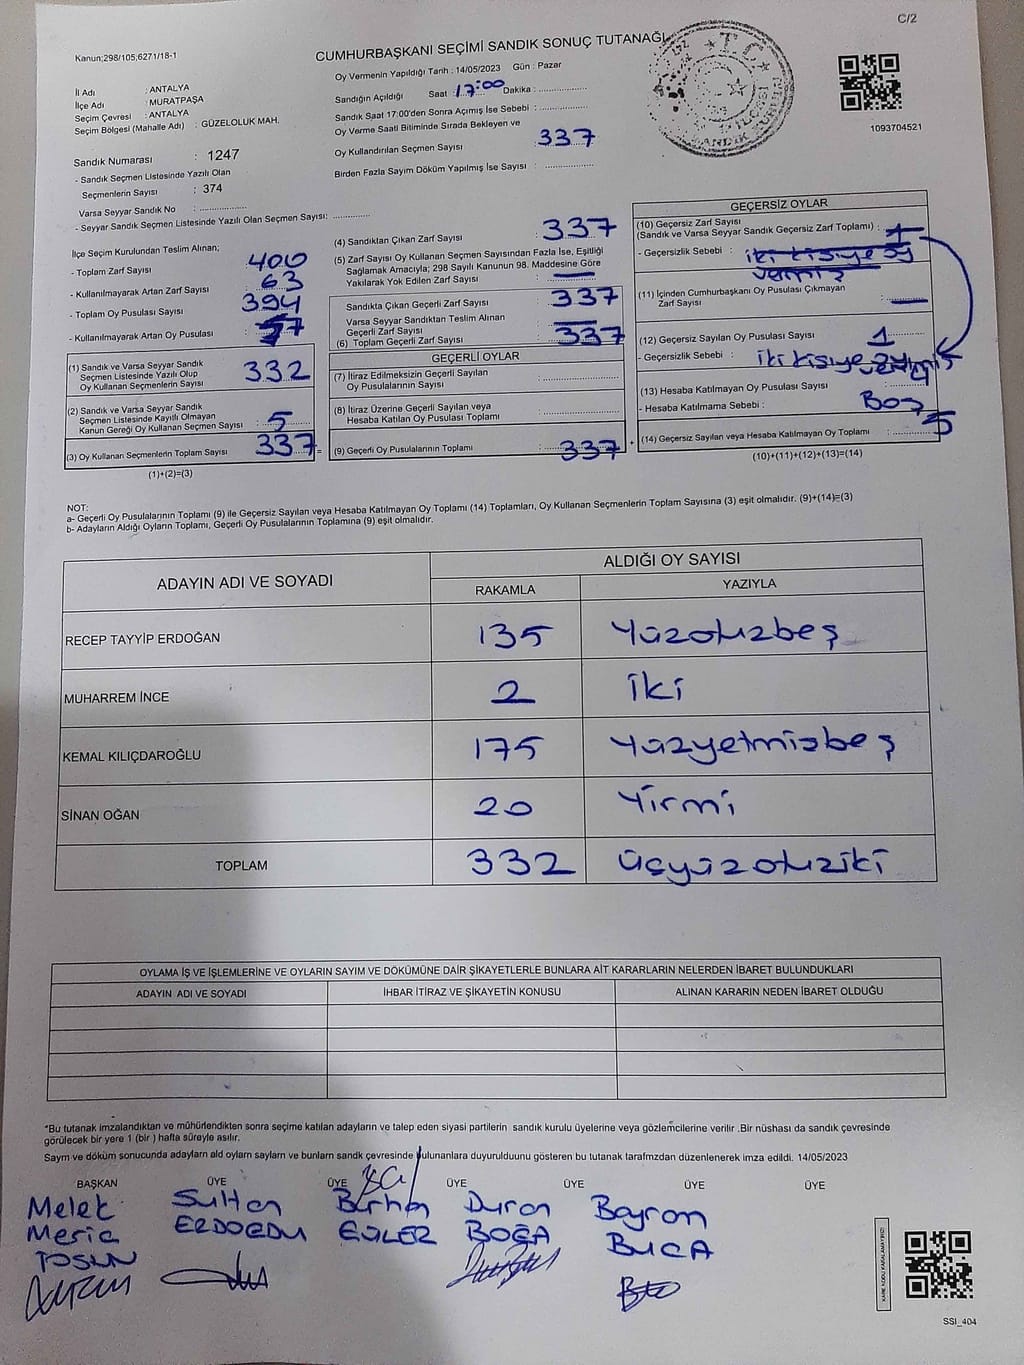 C/2
Kanun;298/105;6271/18-1
CUMHURBAŞKANI SEÇİMİ SANDIK SONUÇ TUTANAĞI
İl Adı : ANTALYA
İlçe Adı : MURATPAŞA
Seçim Çevresi : ANTALYA
Seçim Bölgesi (Mahalle Adı) : GÜZELOLUK MAH.
Sandık Numarası : 1247
- Sandık Seçmen Listesinde Yazılı Olan
Seçmenlerin Sayısı : 374
Varsa Seyyar Sandık No : ................
- Seyyar Sandık Seçmen Listesinde Yazılı Olan Seçmen Sayısı: .............
Oy Vermenin Yapıldığı Tarih : 14/05/2023 Gün : Pazar
Sandığın Açıldığı Saat : 17:00 Dakika : .................
Sandık Saat 17:00'den Sonra Açımış İse Sebebi : .................
Oy Verme Saati Bitiminde Sırada Bekleyen ve
Oy Kullandırılan Seçmen Sayısı : 337
Birden Fazla Sayım Döküm Yapılmış İse Sayısı : .................
T.C.
1093704521
İlçe Seçim Kurulundan Teslim Alınan;
- Toplam Zarf Sayısı : 400
- Kullanılmayarak Artan Zarf Sayısı : 63
- Toplam Oy Pusulası Sayısı : 394
- Kullanılmayarak Artan Oy Pusulası : 57
(1) Sandık ve Varsa Seyyar Sandık
Seçmen Listesinde Yazılı Olup
Oy Kullanan Seçmenlerin Sayısı : 332
(2) Sandık ve Varsa Seyyar Sandık
Seçmen Listesinde Kayıtlı Olmayan
Kanun Gereği Oy Kullanan Seçmen Sayısı : 5
(3) Oy Kullanan Seçmenlerin Toplam Sayısı : 337 =
(1)+(2)=(3)
(4) Sandıktan Çıkan Zarf Sayısı : 337
(5) Zarf Sayısı Oy Kullanan Seçmen Sayısından Fazla İse, Eşitliği
Sağlamak Amacıyla; 298 Sayılı Kanunun 98. Maddesine Göre
Yakılarak Yok Edilen Zarf Sayısı : —
Sandıkta Çıkan Geçerli Zarf Sayısı : 337
Varsa Seyyar Sandıktan Teslim Alınan
Geçerli Zarf Sayısı : —
(6) Toplam Geçerli Zarf Sayısı : 337
GEÇERLİ OYLAR
(7) İtiraz Edilmeksizin Geçerli Sayılan
Oy Pusulalarının Sayısı : .................
(8) İtiraz Üzerine Geçerli Sayılan veya
Hesaba Katılan Oy Pusulası Toplamı : .................
(9) Geçerli Oy Pusulalarının Toplamı : 337 +
GEÇERSİZ OYLAR
(10) Geçersiz Zarf Sayısı
(Sandık ve Varsa Seyyar Sandık Geçersiz Zarf Toplamı) : 1
- Geçersizlik Sebebi : iki kişiye oy
vermiş
(11) İçinden Cumhurbaşkanı Oy Pusulası Çıkmayan
Zarf Sayısı : —
(12) Geçersiz Sayılan Oy Pusulası Sayısı : 1
- Geçersizlik Sebebi : iki kişiye
(13) Hesaba Katılmayan Oy Pusulası Sayısı : 4
- Hesaba Katılmama Sebebi : Boş
(14) Geçersiz Sayılan veya Hesaba Katılmayan Oy Toplamı : 5
(10)+(11)+(12)+(13)=(14)
NOT:
a- Geçerli Oy Pusulalarının Toplamı (9) ile Geçersiz Sayılan veya Hesaba Katılmayan Oy Toplamı (14) Toplamları, Oy Kullanan Seçmenlerin Toplam Sayısına (3) eşit olmalıdır. (9)+(14)=(3)
b- Adayların Aldığı Oyların Toplamı, Geçerli Oy Pusulalarının Toplamına (9) eşit olmalıdır.
ADAYIN ADI VE SOYADI ALDIĞI OY SAYISI
RAKAMLA YAZIYLA
RECEP TAYYİP ERDOĞAN 135 Yüzotuzbeş
MUHARREM İNCE 2 İki
KEMAL KILIÇDAROĞLU 175 Yüzyetmişbeş
SİNAN OĞAN 20 Yirmi
TOPLAM 332 üçyüzotuziki
OYLAMA İŞ VE İŞLEMLERİNE VE OYLARIN SAYIM VE DÖKÜMÜNE DAİR ŞİKAYETLERLE BUNLARA AİT KARARLARIN NELERDEN İBARET BULUNDUKLARI
ADAYIN ADI VE SOYADI İHBAR İTİRAZ VE ŞİKAYETİN KONUSU ALINAN KARARIN NEDEN İBARET OLDUĞU
*Bu tutanak imzalandıktan ve mühürlendikten sonra seçime katılan adayların ve talep eden siyasi partilerin sandık kurulu üyelerine veya gözlemcilerine verilir .Bir nüshası da sandık çevresinde
görülecek bir yere 1 (bir ) hafta süreyle asılır.
Sayım ve döküm sonucunda adayların ald oyların sayıları ve bunların sandk çevresinde bulunanlara duyurulduunu gösteren bu tutanak tarafmzdan düzenlenerek imza edildi. 14/05/2023
BAŞKAN ÜYE ÜYE ÜYE ÜYE ÜYE ÜYE
Melek Sultan Burhan Duran Bayram
Meriç ERDOĞDU GÜLER BOĞA BUCA
TOSUN
KARE KODU KARALAMAYINIZ!
SSI_404